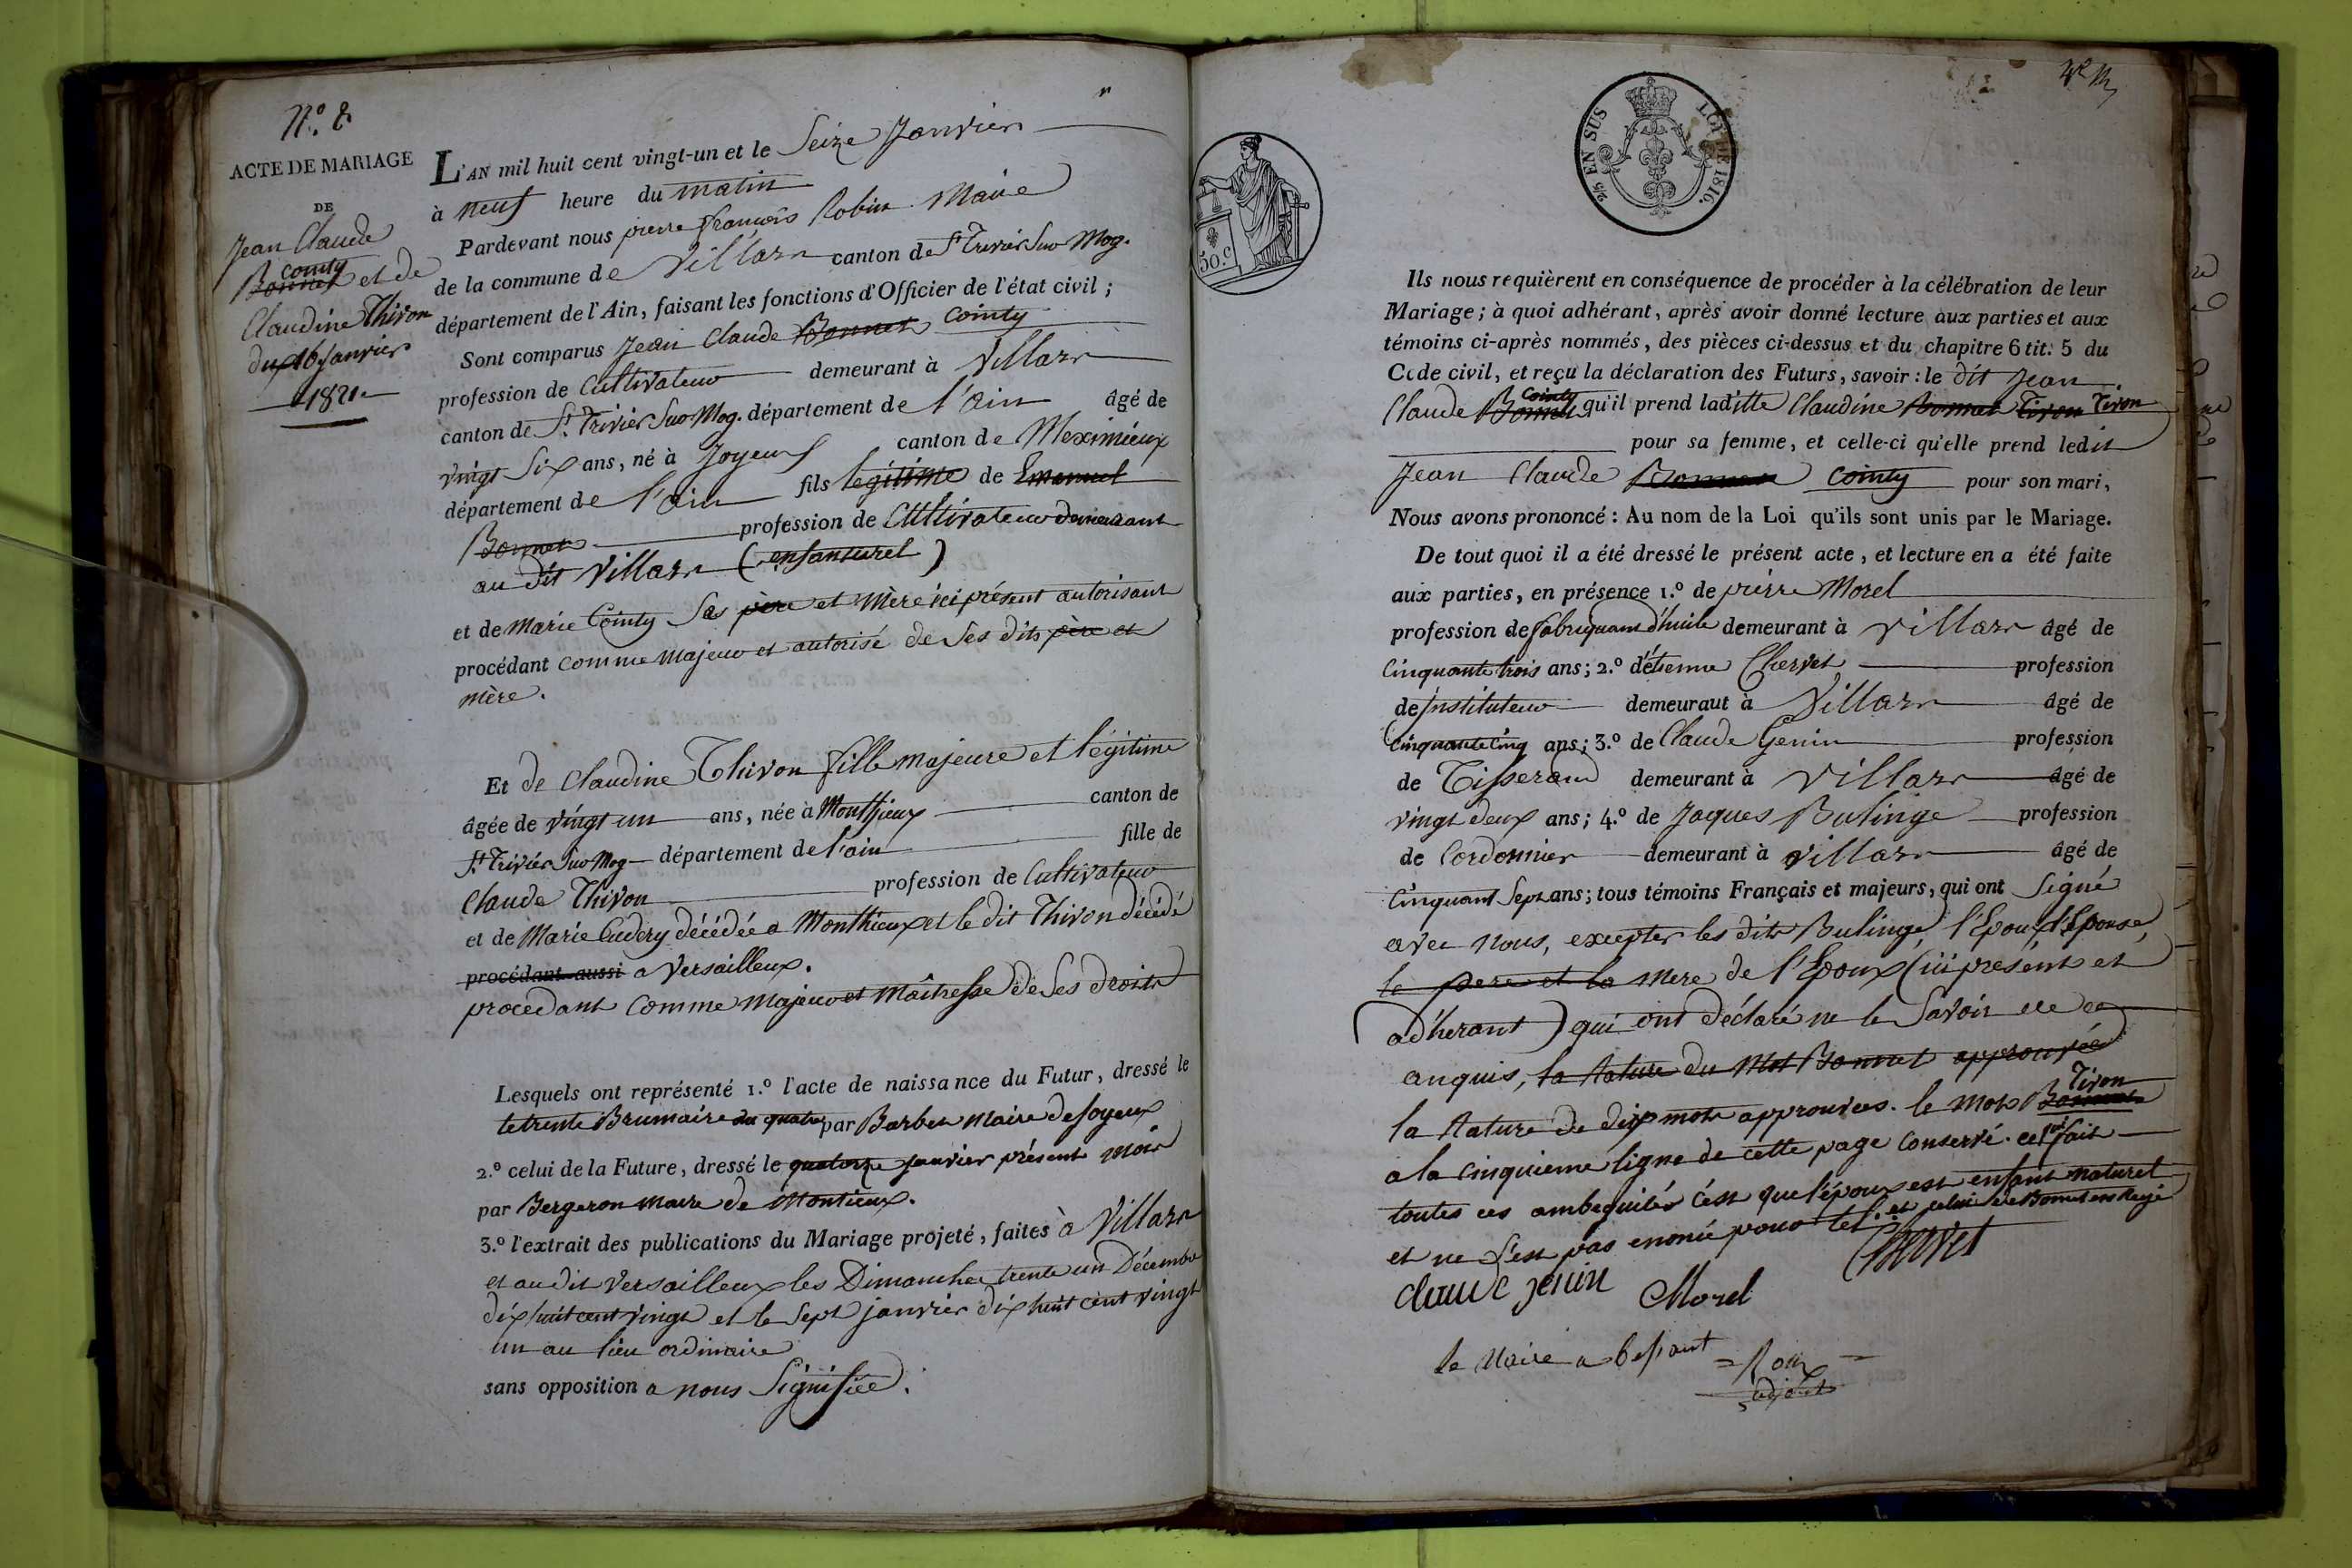 N.º 8
ACTE DE MARIAGE
DE
Jean Claude
Bonnet Cointy et de
Claudine Thivon
du 16 Janvier
1821
L'AN mil huit cent vingt-un et le Seize Janvier
à neuf heure du matin
Pardevant nous pierre françois Robin Maire
de la commune de Villars canton de St Trivier Sur Mog.
département de l'Ain, faisant les fonctions d'Officier de l'état civil ;
Sont comparus Jean Claude Bonnet Cointy
profession de Cultivateur demeurant à Villars
canton de St. Trivier Sur Mog. département de l'ain âgé de
vingt Six ans, né à Joyeux canton de Meximieux
département de l'ain fils légitime de Emanuel
Bonnet profession de Cultivateur demeurant
au dit Villars (enf naturel)
et de Marie Cointy Ses père et Mère ici présent autorisant
procédant comme Majeur et autorisé de Ses dits père et
mère.
Et de Claudine Thivon fille majeure et légitime
âgée de vingt un ans, née à Monthieux canton de
St. Trivier Sur Mog département de l'ain fille de
Claude Thivon profession de Cultivateur
et de Marie Cudery décédée a Monthieux et le dit Thivon décédé
procédant aussi a Versailleux.
procedant Comme Majeur et Maîtresse de Ses droits
Lesquels ont représenté 1.º l'acte de naissance du Futur, dressé le
le trente Brumaire an quatre par Barbet Maire de Joyeux
2.º celui de la Future, dressé le quatorze Janvier présent mois
par Bergeron Maire de Montieux.
3.º l'extrait des publications du Mariage projeté, faites à Villars
et au dit Versailleux les Dimanches trente un Décembre
dix huit cent vingt et le Sept janvier dix huit cent vingt
un au lieu ordinaire
sans opposition a nous Signifiée.
50.c
2/5 EN SUS LOI DE 1816.
Ils nous requièrent en conséquence de procéder à la célébration de leur
Mariage ; à quoi adhérant, après avoir donné lecture aux parties et aux
témoins ci-après nommés, des pièces ci-dessus et du chapitre 6 tit. 5 du
Code civil, et reçu la déclaration des Futurs, savoir : le dit Jean
Claude Bonnet Cointy qu'il prend laditte Claudine Bonnet Tivon Tivon
pour sa femme, et celle-ci qu'elle prend ledit
Jean Claude Bonnet Cointy pour son mari,
Nous avons prononcé : Au nom de la Loi qu'ils sont unis par le Mariage.
De tout quoi il a été dressé le présent acte, et lecture en a été faite
aux parties, en présence 1.º de pierre Morel
profession de fabriquant d'huile demeurant à Villars âgé de
Cinquante trois ans ; 2.º d'étienne Chervet profession
de Instituteur demeuraut à Villars âgé de
Cinquante Cinq ans ; 3.º de Claude Genin profession
de Tisserand demeurant à Villars âgé de
vingt deux ans ; 4.º de Jaques Bulinge profession
de Cordonnier demeurant à Villars âgé de
Cinquant Sept ans ; tous témoins Français et majeurs, qui ont Signé
avec nous, excepter les dits Bulinge, l'Epoux, l'Epouse,
le pere et la Mere de l'Epoux (ici présent et
adhérant) qui ont déclaré ne le Savoir de ce
anquis, la Rature du Mot Bonnet approuvée
la Rature de dix mots approuvées. le mots Bonnet Tivon
a la Cinquieme ligne de cette page conservé. ce qui fait
toutes ces ambeguités c'est que l'époux est enfant naturel
et ne s'est pas enoncé pour tel. et celui de Bonnet en Rejé
Chervet
claude jenin
Morel
le Maire absent = Roux =
adjoint